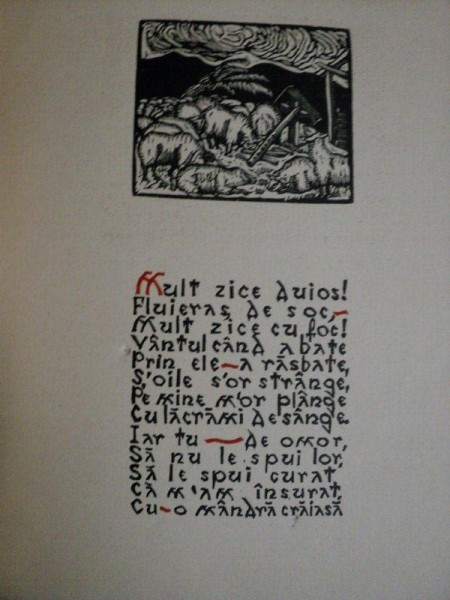 Mult zice duios!
Fluieraș de soc—
Mult zice cu foc!
Vântul când a bate
Prin ele—a răsbate,
Ș'oile s'or strânge,
Pe mine m'or plânge
Cu lăcrămi de sânge.
Iar tu — de omor,
Să nu le spui lor,
Să le spui curat,
Că m'am însurat,
Cu-o mândră crăiasă